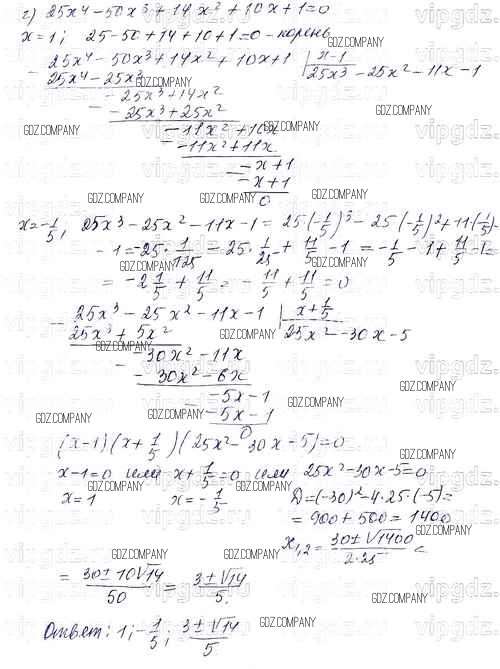 г) 25x⁴ - 50x³ + 14x² + 10x + 1 = 0
x = 1; 25 - 50 + 14 + 10 + 1 = 0 - корень
25x⁴ - 50x³ + 14x² + 10x + 1 | x - 1
25x⁴ - 25x³ 25x³ - 25x² - 11x - 1
- 25x³ + 14x²
- 25x³ + 25x²
- 11x² + 10x
- 11x² + 11x
- x + 1
- x + 1
0
x = -1/5, 25x³ - 25x² - 11x - 1 = 25·(-1/5)³ - 25(-1/5)² + 11·(1/5) -
- 1 = -25·1/125 - 25·1/25 + 11/5 - 1 = -1/5 - 1 + 11/5 - 1 =
= -2 1/5 + 11/5 = -11/5 + 11/5 = 0
25x³ - 25x² - 11x - 1 | x + 1/5
25x³ + 5x² 25x² - 30x - 5
- 30x² - 11x
- 30x² - 6x
- 5x - 1
- 5x - 1
0
(x-1)(x + 1/5)(25x² - 30x - 5) = 0
x - 1 = 0 или x + 1/5 = 0 или 25x² - 30x - 5 = 0
x = 1 x = -1/5 D = (-30)² - 4·25·(-5) =
= 900 + 500 = 1400
x₁,₂ = (30 ± √1400)/(2·25) =
= (30 ± 10√14)/50 = (3 ± √14)/5.
Ответ: 1; -1/5; (3 ± √14)/5
GDZ.COMPANY
vipgdz.ru